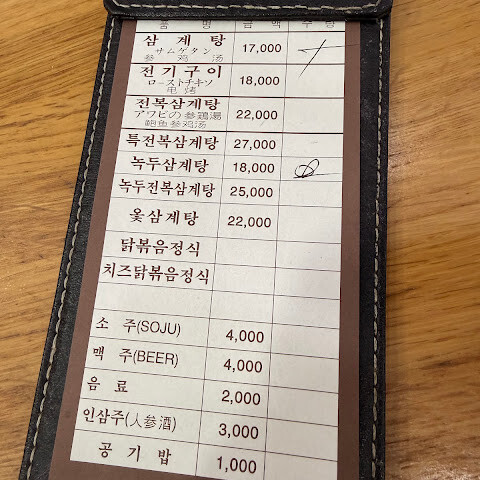 품 명 금 액 수 량
삼 계 탕 17,000
サムゲタン
参 鸡 汤
전 기 구 이 18,000
ローストチキン
电 烤
전복삼계탕 22,000
アワビの参鶏湯
鲍鱼参鸡汤
특전복삼계탕 27,000
녹두삼계탕 18,000
녹두전복삼계탕 25,000
옻삼계탕 22,000
닭볶음정식
치즈닭볶음정식
소 주(SOJU) 4,000
맥 주(BEER) 4,000
음 료 2,000
인삼주(人參酒) 3,000
공 기 밥 1,000